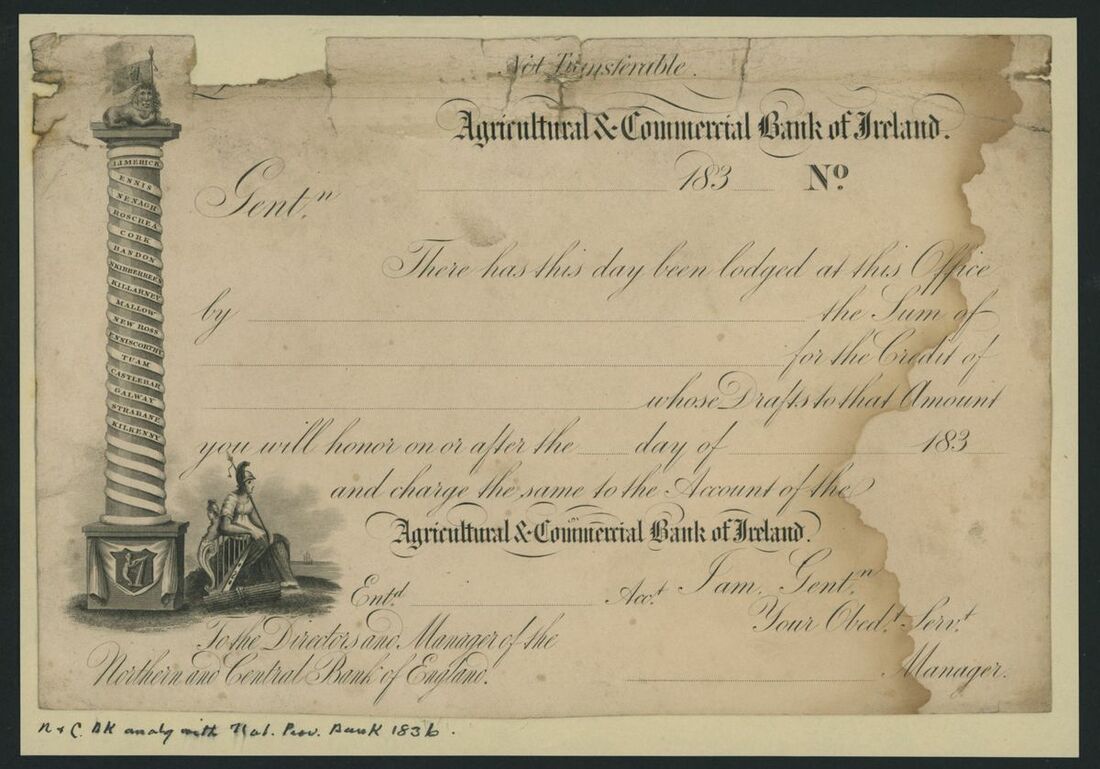 Not Transferable.
Agricultural & Commercial Bank of Ireland.
183 No
Gent.n
There has this day been lodged at this Office
by the Sum of
for the Credit of
whose Drafts to that Amount
you will honor on or after the day of 183
and charge the same to the Account of the
Agricultural & Commercial Bank of Ireland.
I am, Gent.n
Ent.d Acc.t
Your Obed.t Serv.t
To the Directors and Manager of the
Northern and Central Bank of England.
Manager.
LIMERICK
ENNIS
NENAGH
ROSCREA
CORK
BANDON
SKIBBEREEN
KILLARNEY
MALLOW
NEW ROSS
ENNISCORTHY
TUAM
CASTLEBAR
GALWAY
STRABANE
KILKENNY
N & C. BK amalg with Nat. Prov. Bank 1836.